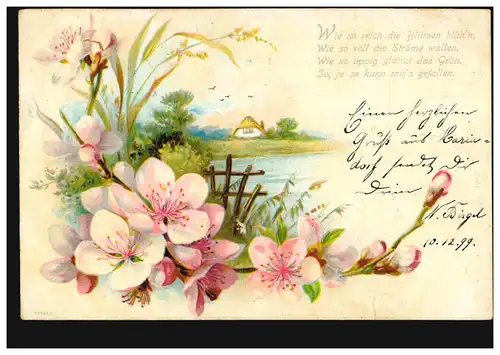 Wie so reich die Blumen blüh'n,
Wie so voll die Ströme wallen,
Wie so üppig glänzt das Grün,
So, ja so kann mir's gefallen.
Einen herzlichen
Gruß aus Marien-
dorf sendet Dir
Dein
N. Bügel
10.12.99.